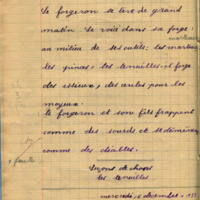 Le forgeron se lève de grand
matin. Le voici dans sa forge :
marteaux
au milieu de ses outils: les
les pinces, les tenailles, il forge
des essieux, des cercles pour les
moyeux.
Le forgeron et son fils frappent
comme des sourds et se démènent
comme des diables.
1 faute
Leçons de choses
les tenailles
mercredi décembre